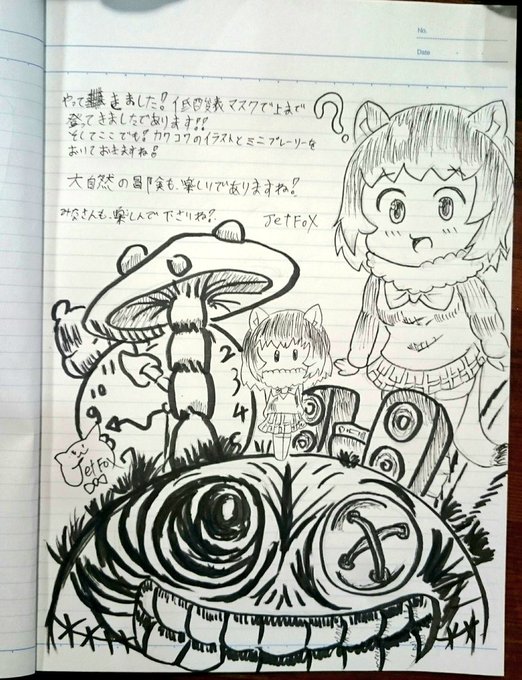 No.
Date
やって来きました!低酸素マスクで上まで
登ってきましたであります!!
そしてここでも!カワコウのイラストとミニプレーリーを
おいておきますね!
大自然の冒険も、楽しいでありますね!
みなさんも、楽しんで下さいね? JetFox
?
2
3
4
9
7
JetFox